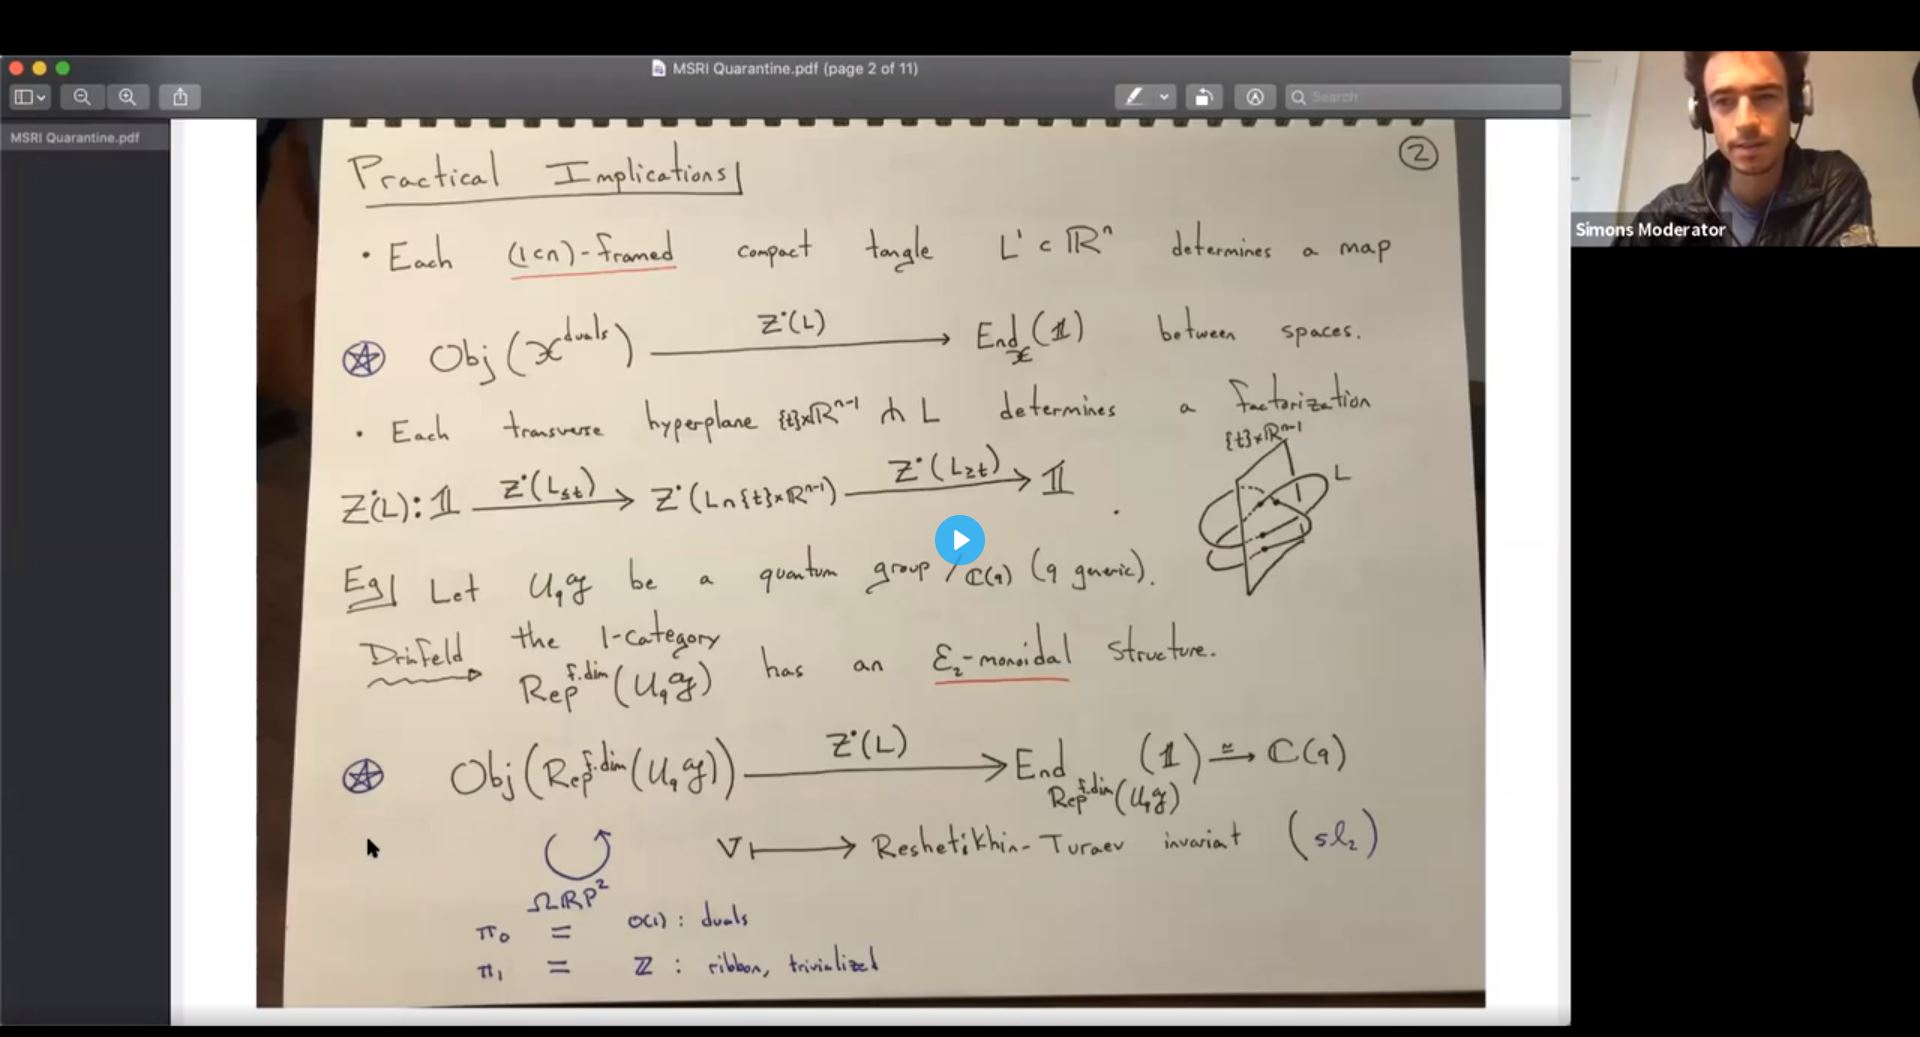 MSRI Quarantine.pdf (page 2 of 11)
Search
MSRI Quarantine.pdf
Simons Moderator
2
Practical Implications
• Each (1⊂n)-framed compact tangle L¹ ⊂ ℝⁿ determines a map
Obj(𝒳^duals) —Z˙(L)→ End_𝒳(𝟙) between spaces.
• Each transverse hyperplane {t}×ℝⁿ⁻¹ ⋔ L determines a factorization
{t}×ℝⁿ⁻¹
L
Z˙(L): 𝟙 —Z˙(L≤t)→ Z˙(L∩{t}×ℝⁿ⁻¹) —Z˙(L≥t)→ 𝟙.
Eg| Let U_q𝔤 be a quantum group /ℂ(q) (q generic).
Drinfeld the 1-category
Rep^f.dim(U_q𝔤) has an ℰ₂-monoidal structure.
Obj(Rep^f.dim(U_q𝔤)) —Z˙(L)→ End_Rep^f.dim(U_q𝔤)(𝟙) ≃→ ℂ(q)
V ↦ Reshetikhin-Turaev invariant (sl₂)
ΩℝP²
π₀ = O(1) : duals
π₁ = ℤ : ribbon, trivialized